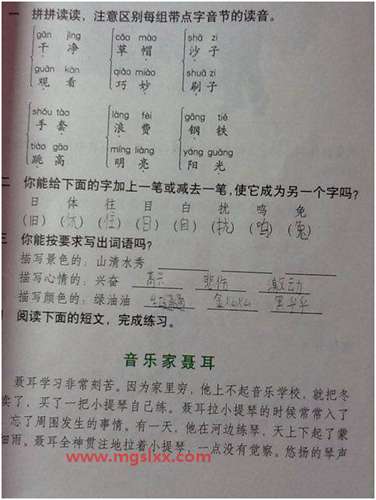 一 拼拼读读，注意区别每组带点字音节的读音。
gān jìng cǎo mào shā zi
干 净 草 帽 沙 子
guān kàn qiǎo miào shuā zi
观 看 巧 妙 刷 子
shǒu tào làng fèi gāng tiě
手 套 浪 费 钢 铁
tiào gāo míng liàng yáng guāng
跳 高 明 亮 阳 光
二 你能给下面的字加上一笔或减去一笔，使它成为另一个字吗？
日 体 往 目 白 扰 鸣 免
（旧）（休）（住）（日）（自）（拢）（鸣）（兔）
三 你能按要求写出词语吗？
描写景色的：山清水秀
描写心情的：兴奋 高兴 悲伤 激动
描写颜色的：绿油油 金灿灿 黑乎乎
阅读下面的短文，完成练习。
音乐家聂耳
聂耳学习非常刻苦。因为家里穷，他上不起音乐学校，就把冬
卖了，买了一把小提琴自己练。聂耳拉小提琴的时候常常入了
忘了周围发生的事情。有一天，他在河边练琴，天上下起了蒙
细雨。聂耳全神贯注地拉着小提琴，一点没有觉察。悠扬的琴声
www.mgslxx.com